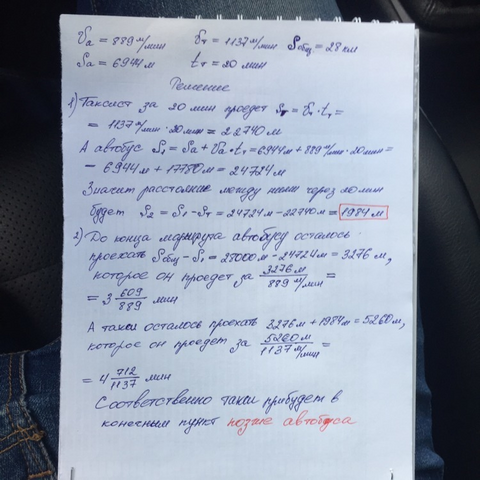 Vа = 889 м/мин Vт = 1137 м/мин Sобщ = 28 км
Sа = 6944 м tт = 20 мин
Решение
1) Таксист за 20 мин проедет Sт = Vт · tт =
= 1137 м/мин · 20 мин = 22740 м
А автобус S1 = Sа + Vа · tт = 6944 м + 889 м/мин · 20 мин =
= 6944 м + 17780 м = 24724 м
Значит расстояние между ними через 20 мин
будет S2 = S1 - Sт = 24724 м - 22740 м = 1984 м
2) До конца маршрута автобусу осталось
проехать Sобщ - S1 = 28000 м - 24724 м = 3276 м,
которое он проедет за 3276 м / 889 м/мин =
= 3 609/889 мин
А такси осталось проехать 3276 м + 1984 м = 5260 м,
которое он проедет за 5260 м / 1137 м/мин =
= 4 712/1137 мин
Соответственно такси прибудет в
конечный пункт позже автобуса